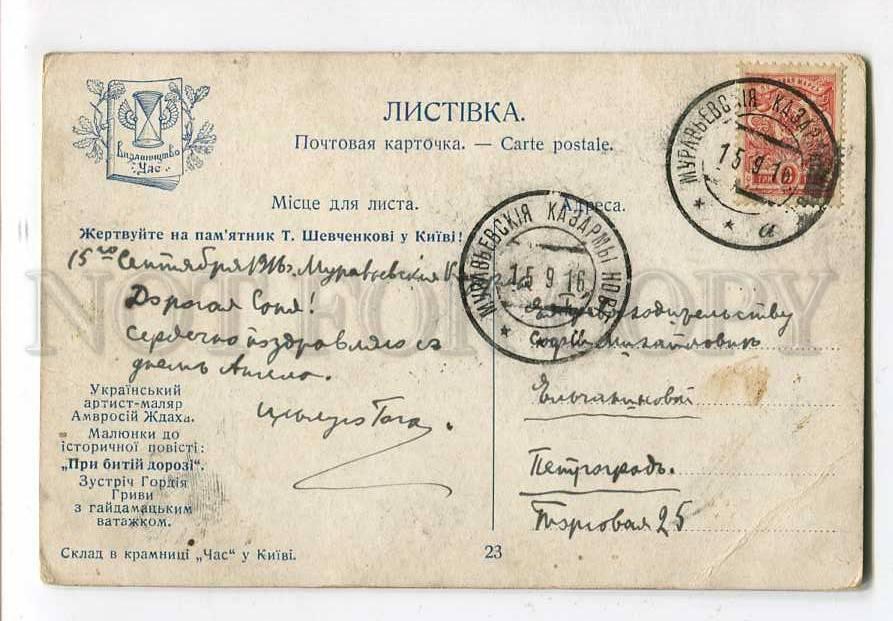 Видавництво
"Час"
ЛИСТІВКА.
Почтовая карточка. — Carte postale.
Місце для листа. Адреса.
Жертвуйте на пам'ятник Т. Шевченкові у Київі!
15го Сентября 1916г. Муравьевскія
Дорогая Соня!
Сердечно поздравляю съ
днемъ Ангела.
Цѣлую
Український
артист-маляр
Амвросій Ждаха.
Малюнки до
історичної повісті:
„При битій дорозі".
Зустріч Гордія
Гриви
з гайдамацьким
ватажком.
Склад в крамниці „Час" у Київі.
23
МУРАВЬЕВСКІЯ КАЗАРМЫ
15 9 16
* * а
МУРАВЬЕВСКІЯ КАЗАРМЫ НОВГ.
15 9 16
*
Софіи Михайловнѣ
Ельчаниновой
Петроградъ.
Торговая 25
NOT FOR COPY